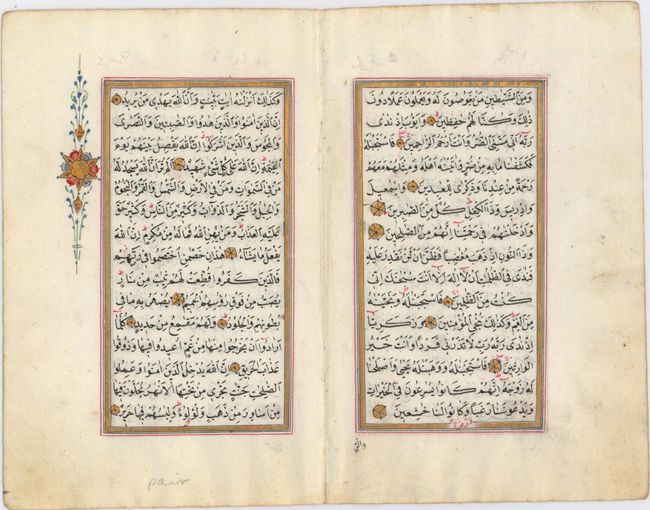 ومن الشيطين من يغوصون له ويعملون عملا دون
ذلك وكنا لهم حفظين وايوب اذ ندى
ربه انى مسنى الضر وانت ارحم الراحمين فاستجبنا له
فكشفنا ما به من ضر واتينه اهله ومثلهم معهم
رحمة من عندنا وذكرى للعبدين واسمعيل
وادريس وذا الكفل كل من الصبرين
وادخلنهم فى رحمتنا انهم من الصلحين
وذا النون اذ ذهب مغضبا فظن ان لن نقدر عليه
فندى فى الظلمت ان لا اله الا انت سبحنك انى
كنت من الظلمين فاستجبنا له ونجينه
من الغم وكذلك نجى المؤمنين وزكريا
اذ ندى ربه رب لا تذرنى فردا وانت خير
الوارثين فاستجبنا له ووهبنا له يحيى واصلحنا
له زوجه انهم كانوا يسرعون فى الخيرات
ويدعوننا رغبا وكانوا لنا خشعين
ورهبا
والتى
وكذلك انزلنه ايت بينت وان الله يهدى من يريد
ان الذين امنوا والذين هادوا والصبئين والنصرى
والمجوس والذين اشركوا ان الله يفصل بينهم يوم
القيمة ان الله على كل شئ شهيد الم تر ان الله يسجد له
من فى السموات ومن فى الارض والشمس والقمر والنجوم
والجبال والشجر والدواب وكثير من الناس وكثير حق
عليه العذاب ومن يهن الله فما له من مكرم ان الله
يفعل ما يشاء هذان خصمن اختصموا فى ربهم
فالذين كفروا قطعت لهم ثيب من نار
يصب من فوق رؤسهم الحميم يصهر به ما فى
بطونهم والجلود ولهم مقمع من حديد كلما
ارادوا ان يخرجوا منها من غم اعيدوا فيها وذوقوا
عذاب الحريق ان الله يدخل الذين امنوا وعملوا
الصلحت جنت تجرى من تحتها الانهر يحلون فيها
من اساور من ذهب ولؤلؤا ولباسهم فيها حرير
pair